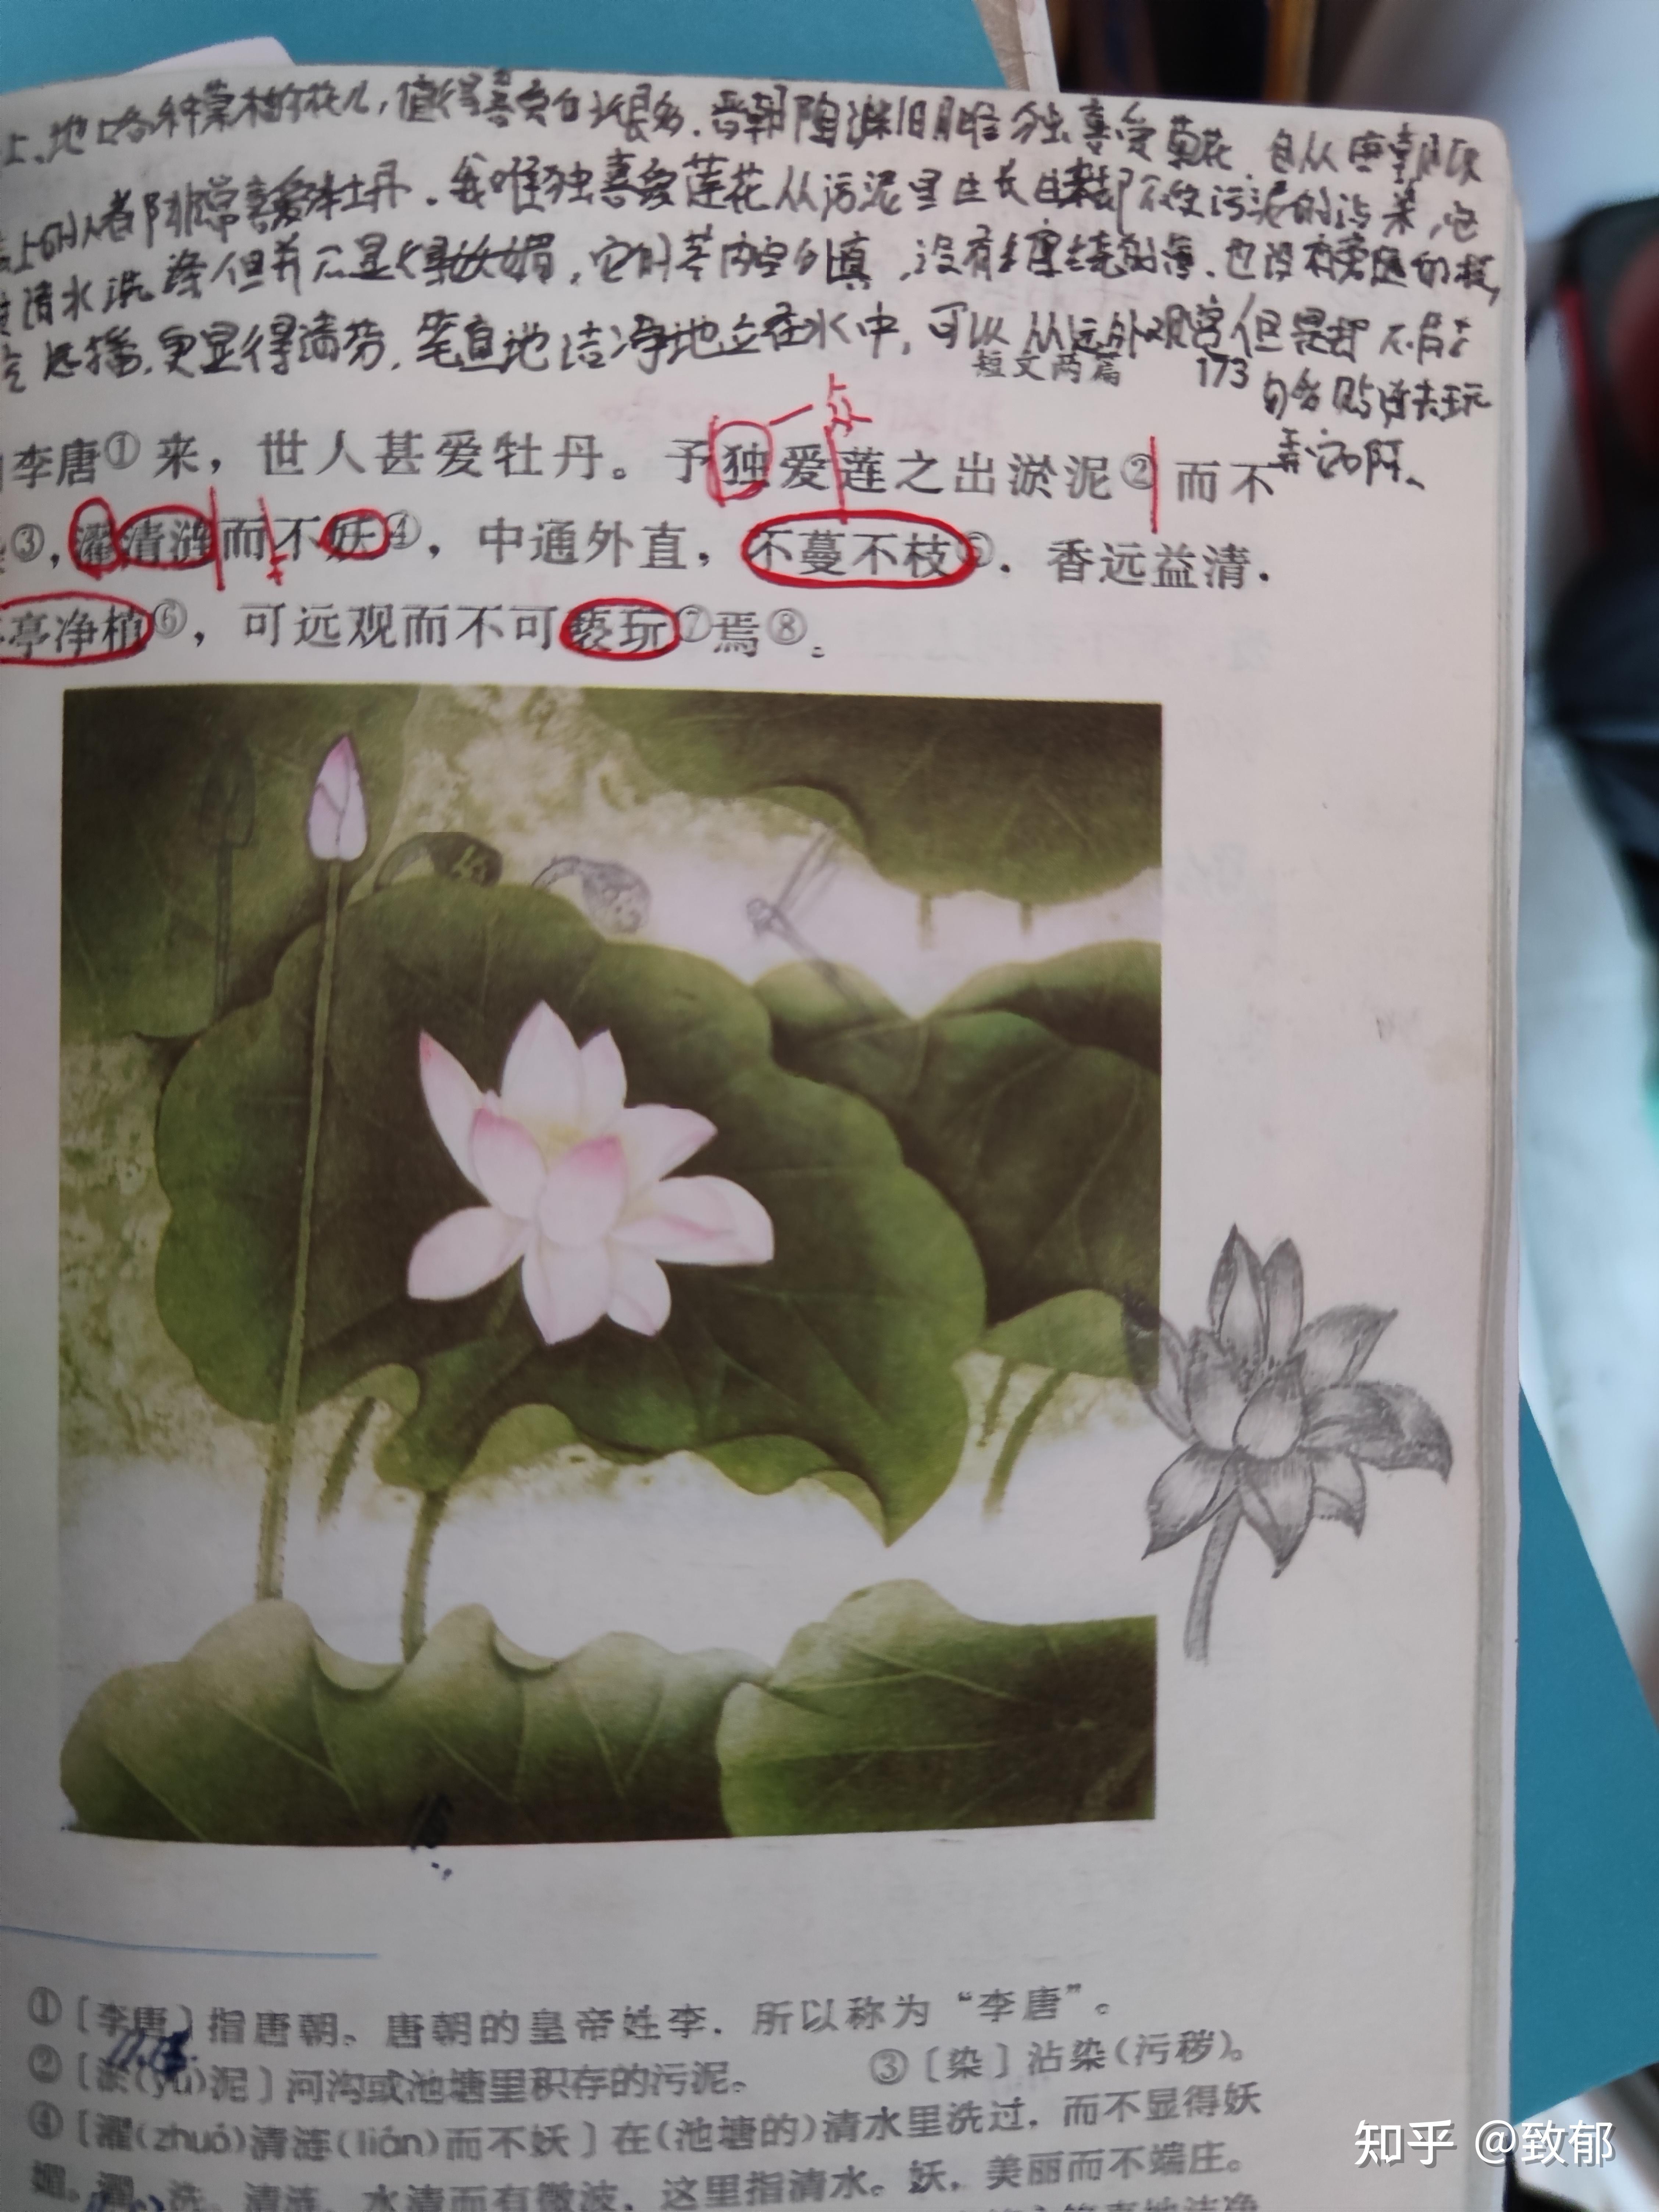 上、地上各种草木的花儿，值得喜爱的很多．晋朝陶渊明唯独喜爱菊花．自从唐朝以
上的人都非常喜爱牡丹．我唯独喜爱莲花从污泥里生长出来却不受污泥的沾染，它
清水洗涤但并不显得妖媚，它的茎内空外直，没有缠绕的蔓．也没有旁逸的枝，
远播，更显得清芬，笔直地洁净地立在水中，可以从远处观赏但是却不能
短文两篇 173
去玩
弄它啊、
李唐① 来，世人甚爱牡丹。予独爱莲之出淤泥②而不
③，濯清涟而不妖④，中通外直，不蔓不枝⑤．香远益清．
亭净植⑥，可远观而不可亵玩⑦焉⑧。
①［李唐］指唐朝、唐朝的皇帝姓李．所以称为“李唐”。
②［淤(yū)泥］河沟或池塘里积存的污泥。 ③［染］沾染(污秽)。
④［濯(zhuó)清涟(lián)而不妖］在(池塘的)清水里洗过，而不显得妖
媚。濯，洗。清涟，水清而有微波，这里指清水。妖，美丽而不端庄。
知乎 @致郁